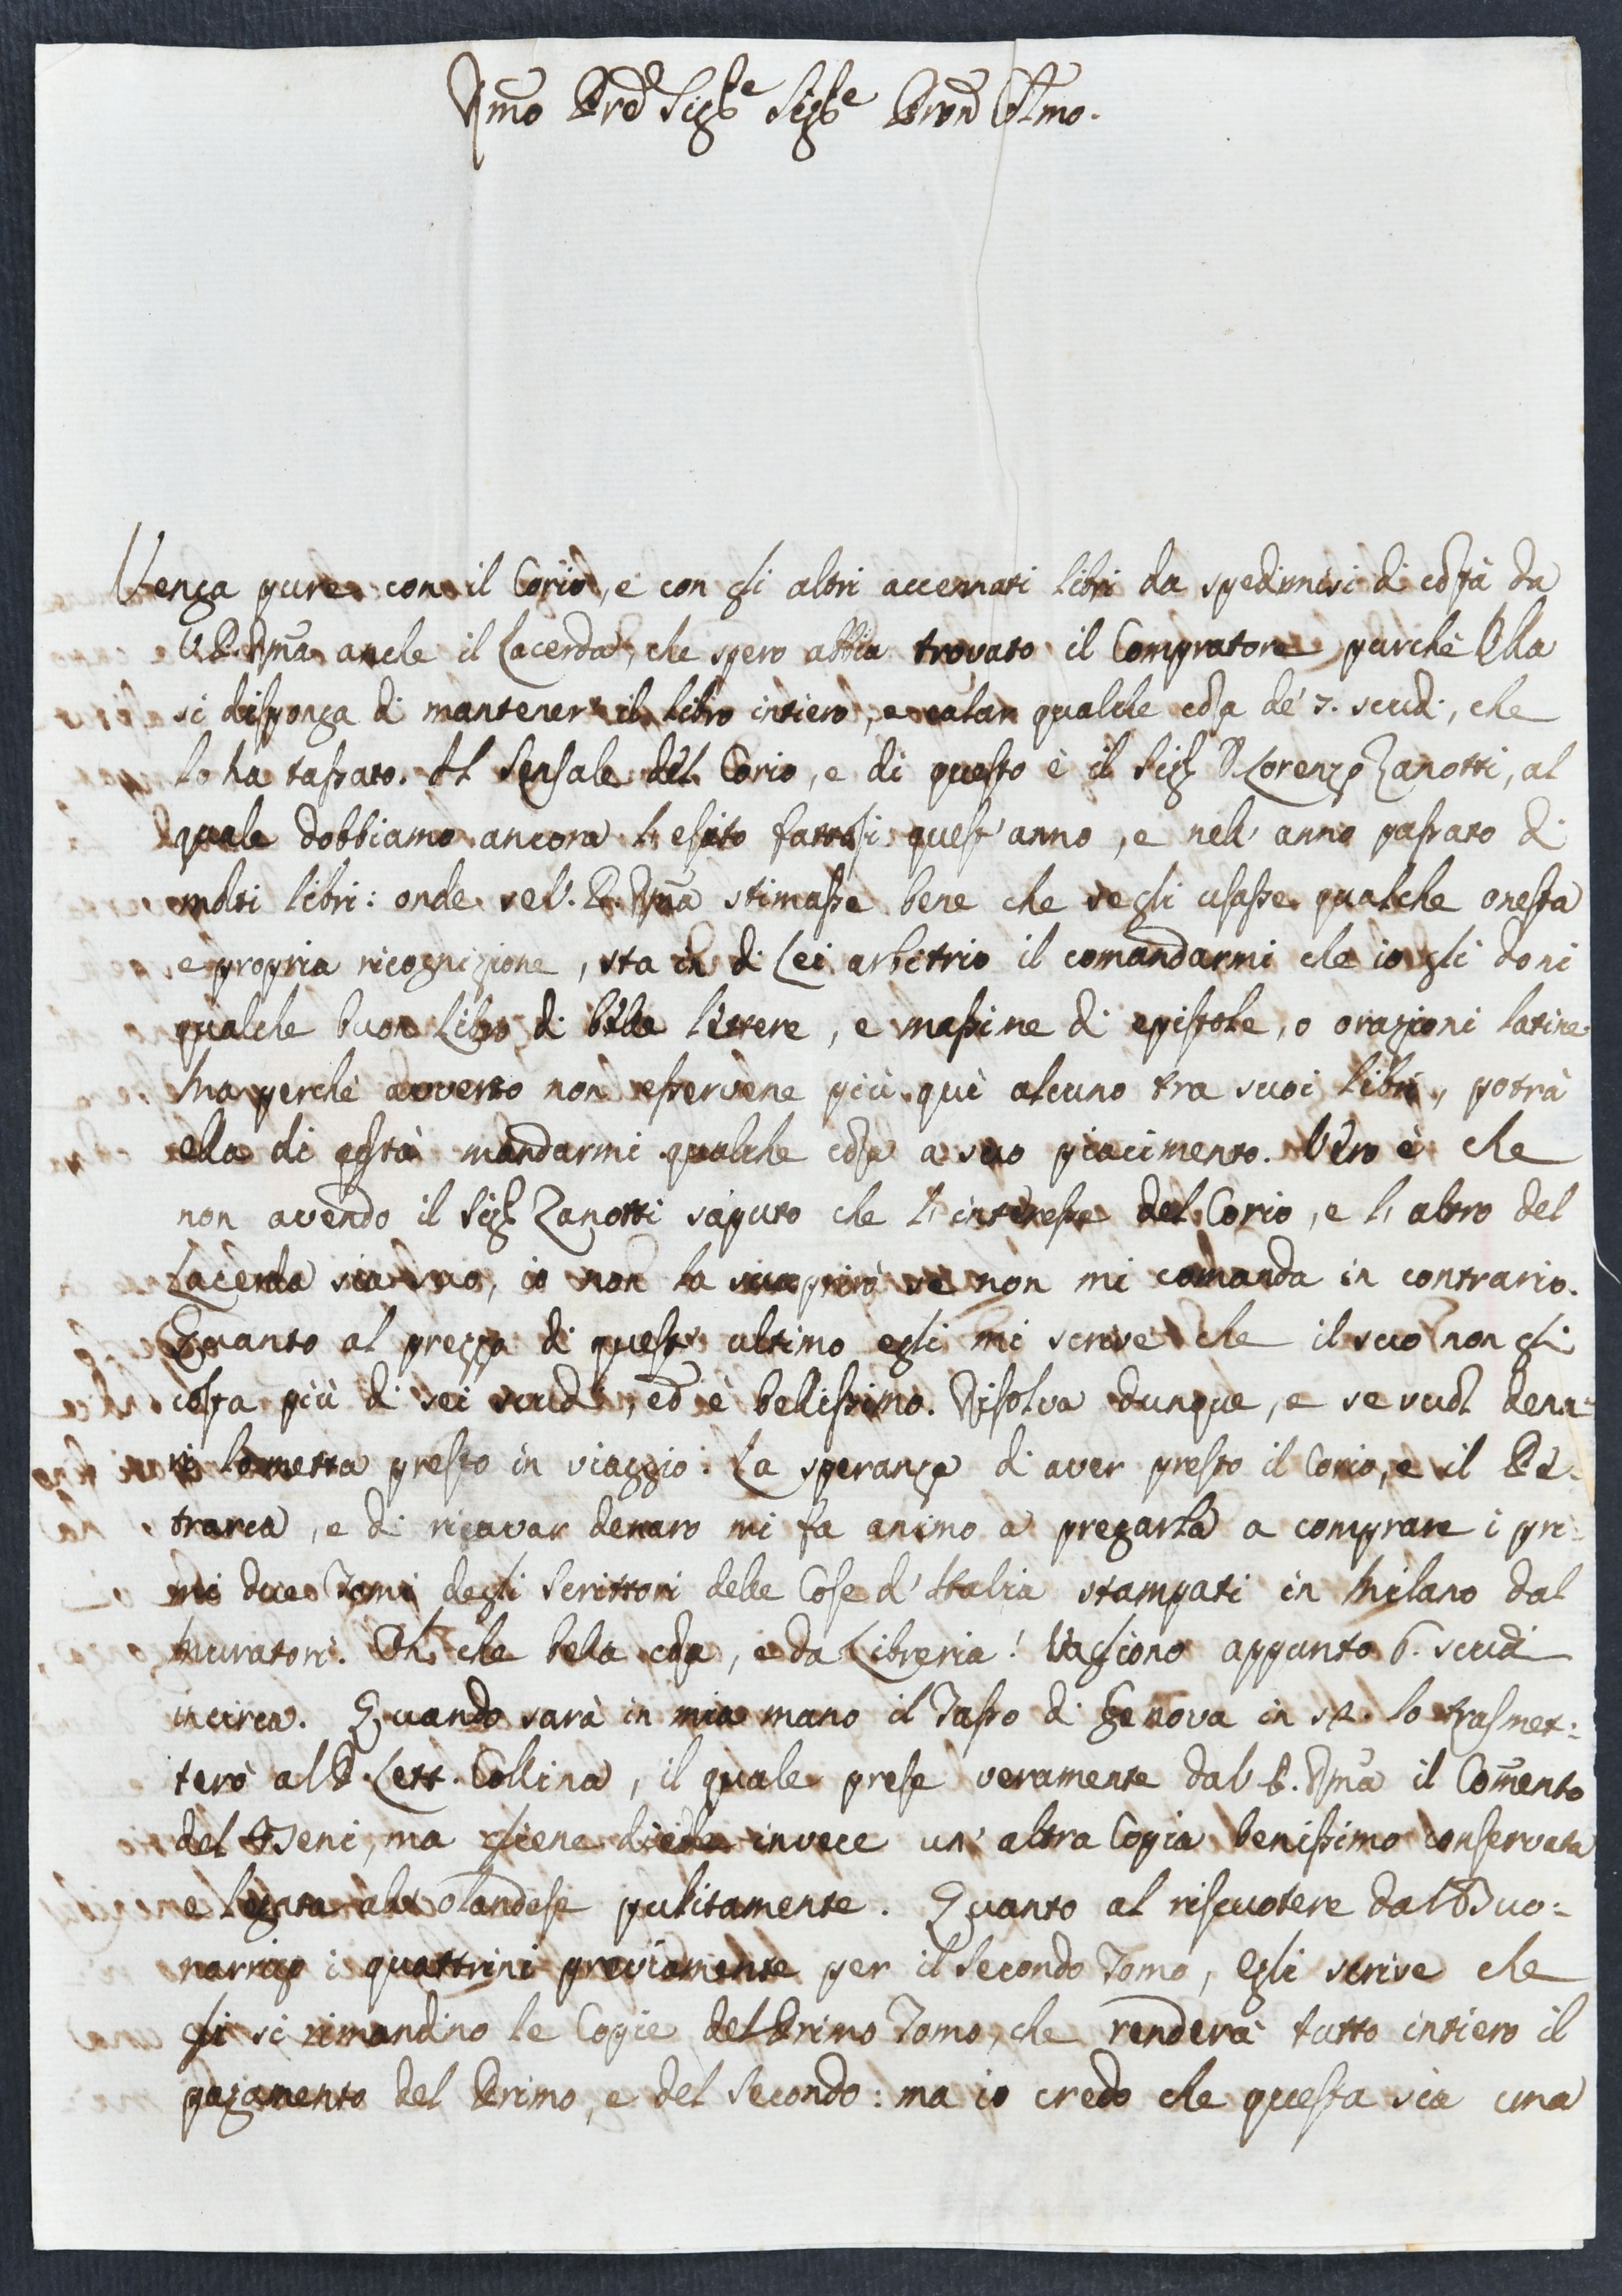 Rmo Prē Sigre Sigre Pron Olmo.
Venga pure con il Corio, e con gli altri accennati libri da spedirmisi di costà da
V. P. Rma anche il Lacerda, che spero abbia trovato il Compratore, purchè Ella
si disponga di mantener il libro intiero, e calar qualche cosa de' 7. scudi, che
lo ha tassato. Il Sensale del Corio, e di questo è il Sigr D. Lorenzo Zanotti, al
quale dobbiamo ancora l' esito fattosi quest' anno, e nell' anno passato di
molti libri: onde se V. P. Rma stimasse bene che se gli usasse qualche onesta
e propria ricognizione, sta in di Lei arbitrio il comandarmi che io gli doni
qualche buon Libro di belle lettere, e massime di epistole, o orazioni latine.
Ma perchè avverto non esservene più quì alcuno tra suoi libri, potrà
ella di costà mandarmi qualche cosa a suo piacimento. Vero è che
non avendo il Sigr Zanotti saputo che l' interesse del Corio, e l' altro del
Lacerda sia suo, io non lo scuoprirò se non mi comanda in contrario.
Quanto al prezzo di quest' ultimo egli mi scrive che il suo non gli
costa più di sei scudi, ed è bellissimo. Risolva dunque, e se vuol dena-
ri lo metta presto in viaggio. La speranza di aver presto il Corio, e il Pe-
trarca, e di ricavar denaro mi fa animo a pregarla a comprare i pri-
mi due Tomi degli Scrittori delle Cose d' Italia stampati in Milano dal
Muratori. Oh che bella cosa, e da Libreria! Vagliono appunto 6. scudi
incirca. Quando sarà in mia mano il Tasso di Genova in 12. lo trasmet-
terò al P. Lett. Collina, il quale prese veramente da V. P. Rma il Comento
del Beni, ma gliene diede invece un' altra Copia benissimo conservata
e legata all' olandese pulitamente. Quanto al riscuotere dal Buo-
narrigo i quattrini previamente per il Secondo Tomo, egli scrive che
gli si rimandino le Copie del Primo Tomo, che renderà tutto intiero il
pagamento del Primo, e del Secondo: ma io credo che questa sia una